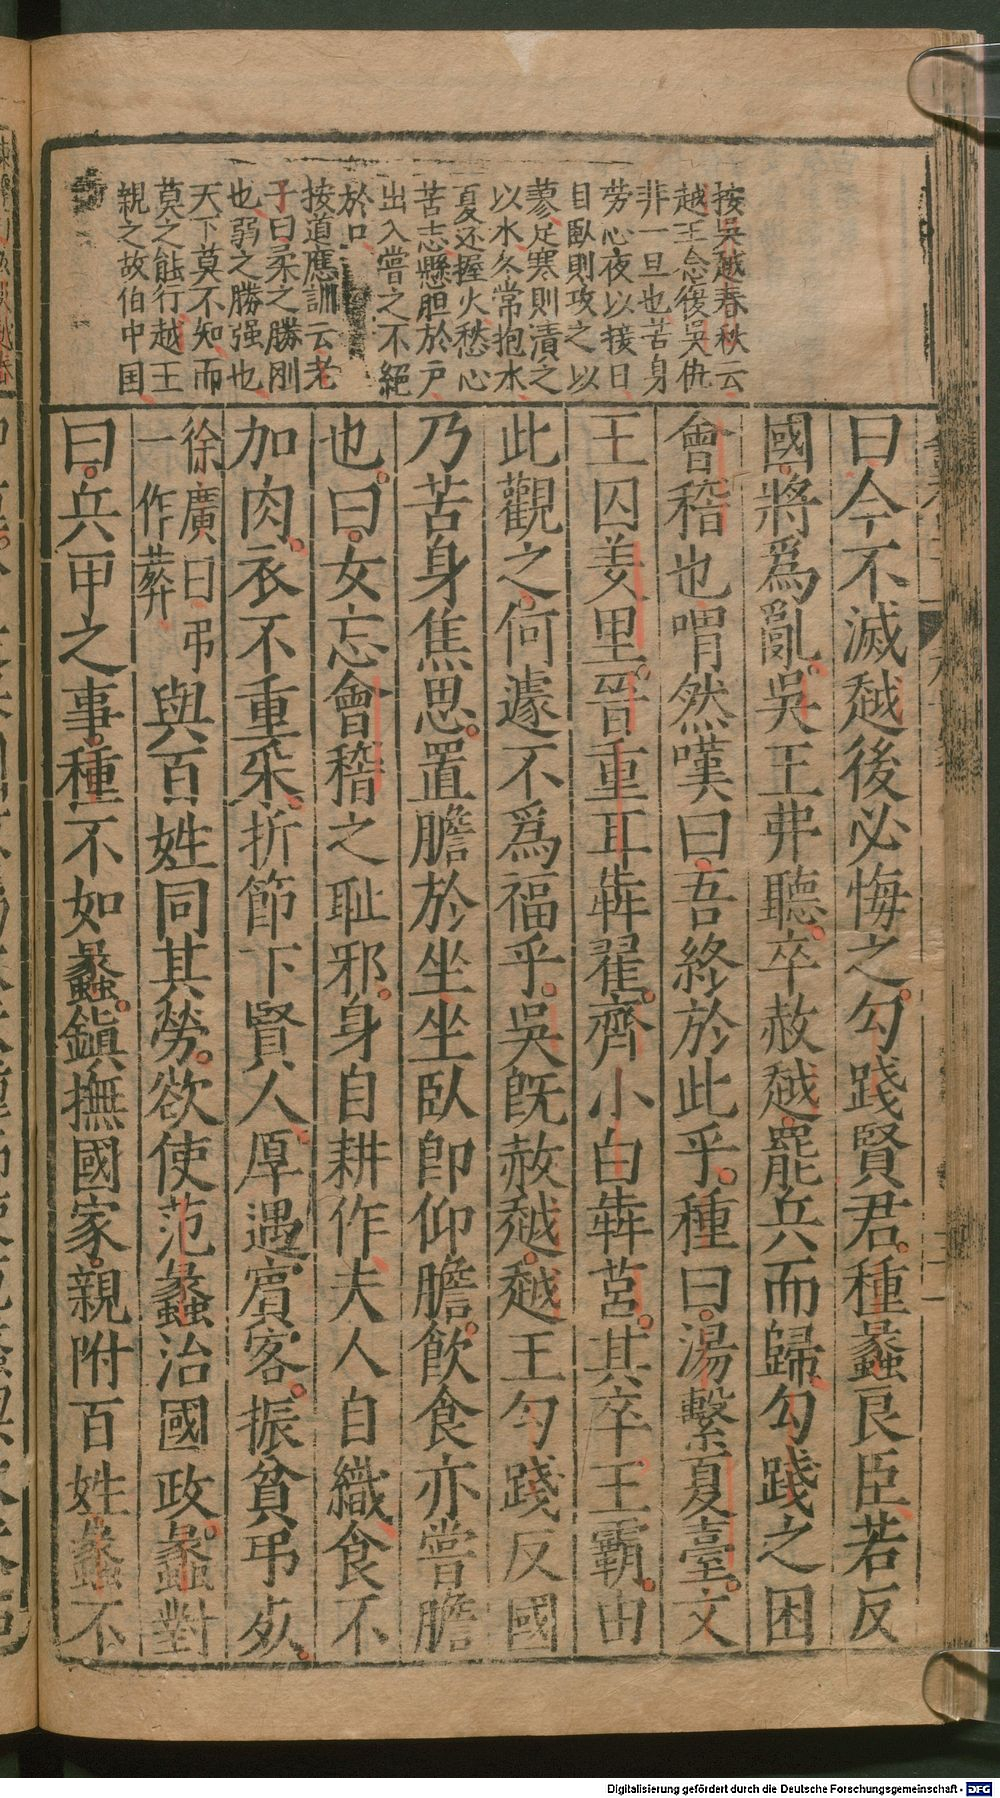 按吳越春秋云
越王念復吳仇
非一旦也苦身
劳心夜以接日
目臥則攻之以
蓼足寒則漬之
以水冬常抱氷
夏还握火愁心
苦志懸胆於戸
出入嘗之不絕
於口
按道應訓云老
子曰柔之勝刚
也弱之勝强也
天下莫不知而
莫之能行越王
親之故伯中国
曰今不滅越後必悔之勾踐賢君種蠡良臣若反
國將爲亂吳王弗聽卒赦越罷兵而歸勾踐之困
會稽也喟然嘆曰吾終於此乎種曰湯繫夏臺文
王囚羑里晉重耳犇翟齊小白犇莒其卒王霸由
此觀之何遽不爲福乎吳旣赦越越王勾踐反國
乃苦身焦思置膽於坐坐臥卽仰膽飲食亦嘗膽
也曰女忘會稽之恥邪身自耕作夫人自織食不
加肉衣不重采折節下賢人厚遇賓客振貧弔死
徐廣曰弔
一作葬
與百姓同其勞欲使范蠡治國政蠡對
曰兵甲之事種不如蠡鎮撫國家親附百姓蠡不
Digitalisierung gefördert durch die Deutsche Forschungsgemeinschaft - DFG